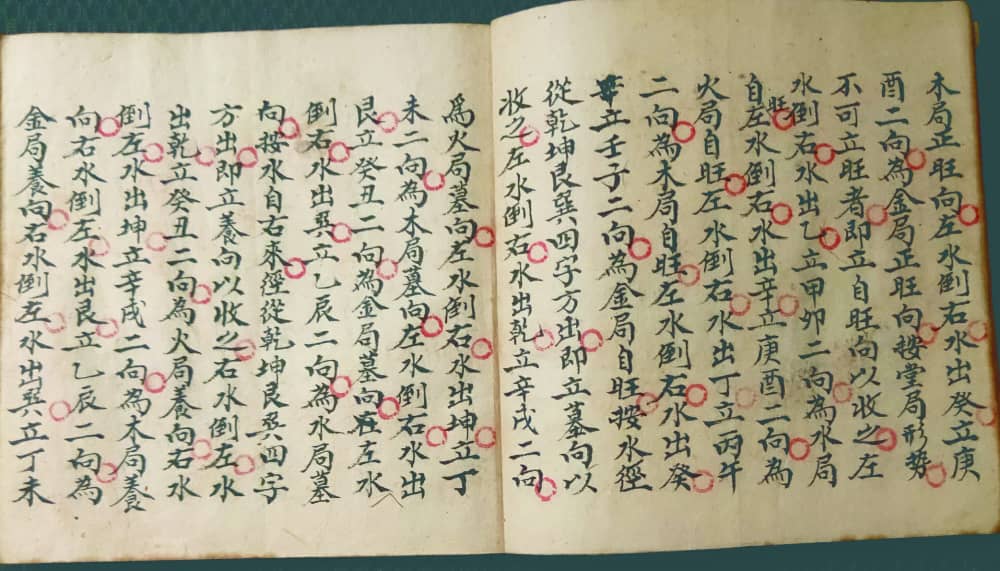 木局正旺向左水倒右水出癸立庚
酉二向為金局正旺向按堂局形勢
不可立旺者即立自旺向以收之左
水倒右水出乙立甲卯二向為水局
自旺左水倒右水出辛立庚酉二向為
火局自旺左水倒右水出丁立丙午
二向為木局自旺左水倒右水出癸
立壬子二向為金局自旺按水徑
從乾坤艮巽四字方出即立墓向以
收之左水倒右水出乾立辛戌二向
為火局墓向左水倒右水出坤立丁
未二向為木局墓向左水倒右水出
艮立癸丑二向為金局墓向左水
倒右水出巽立乙辰二向為水局墓
向按水自右來徑從乾坤艮巽四字
方出即立養向以收之右水倒左水
出乾立癸丑二向為火局養向右水
倒左水出坤立辛戌二向為木局養
向右水倒左水出艮立乙辰二向為
金局養向右水倒左水出巽立丁未